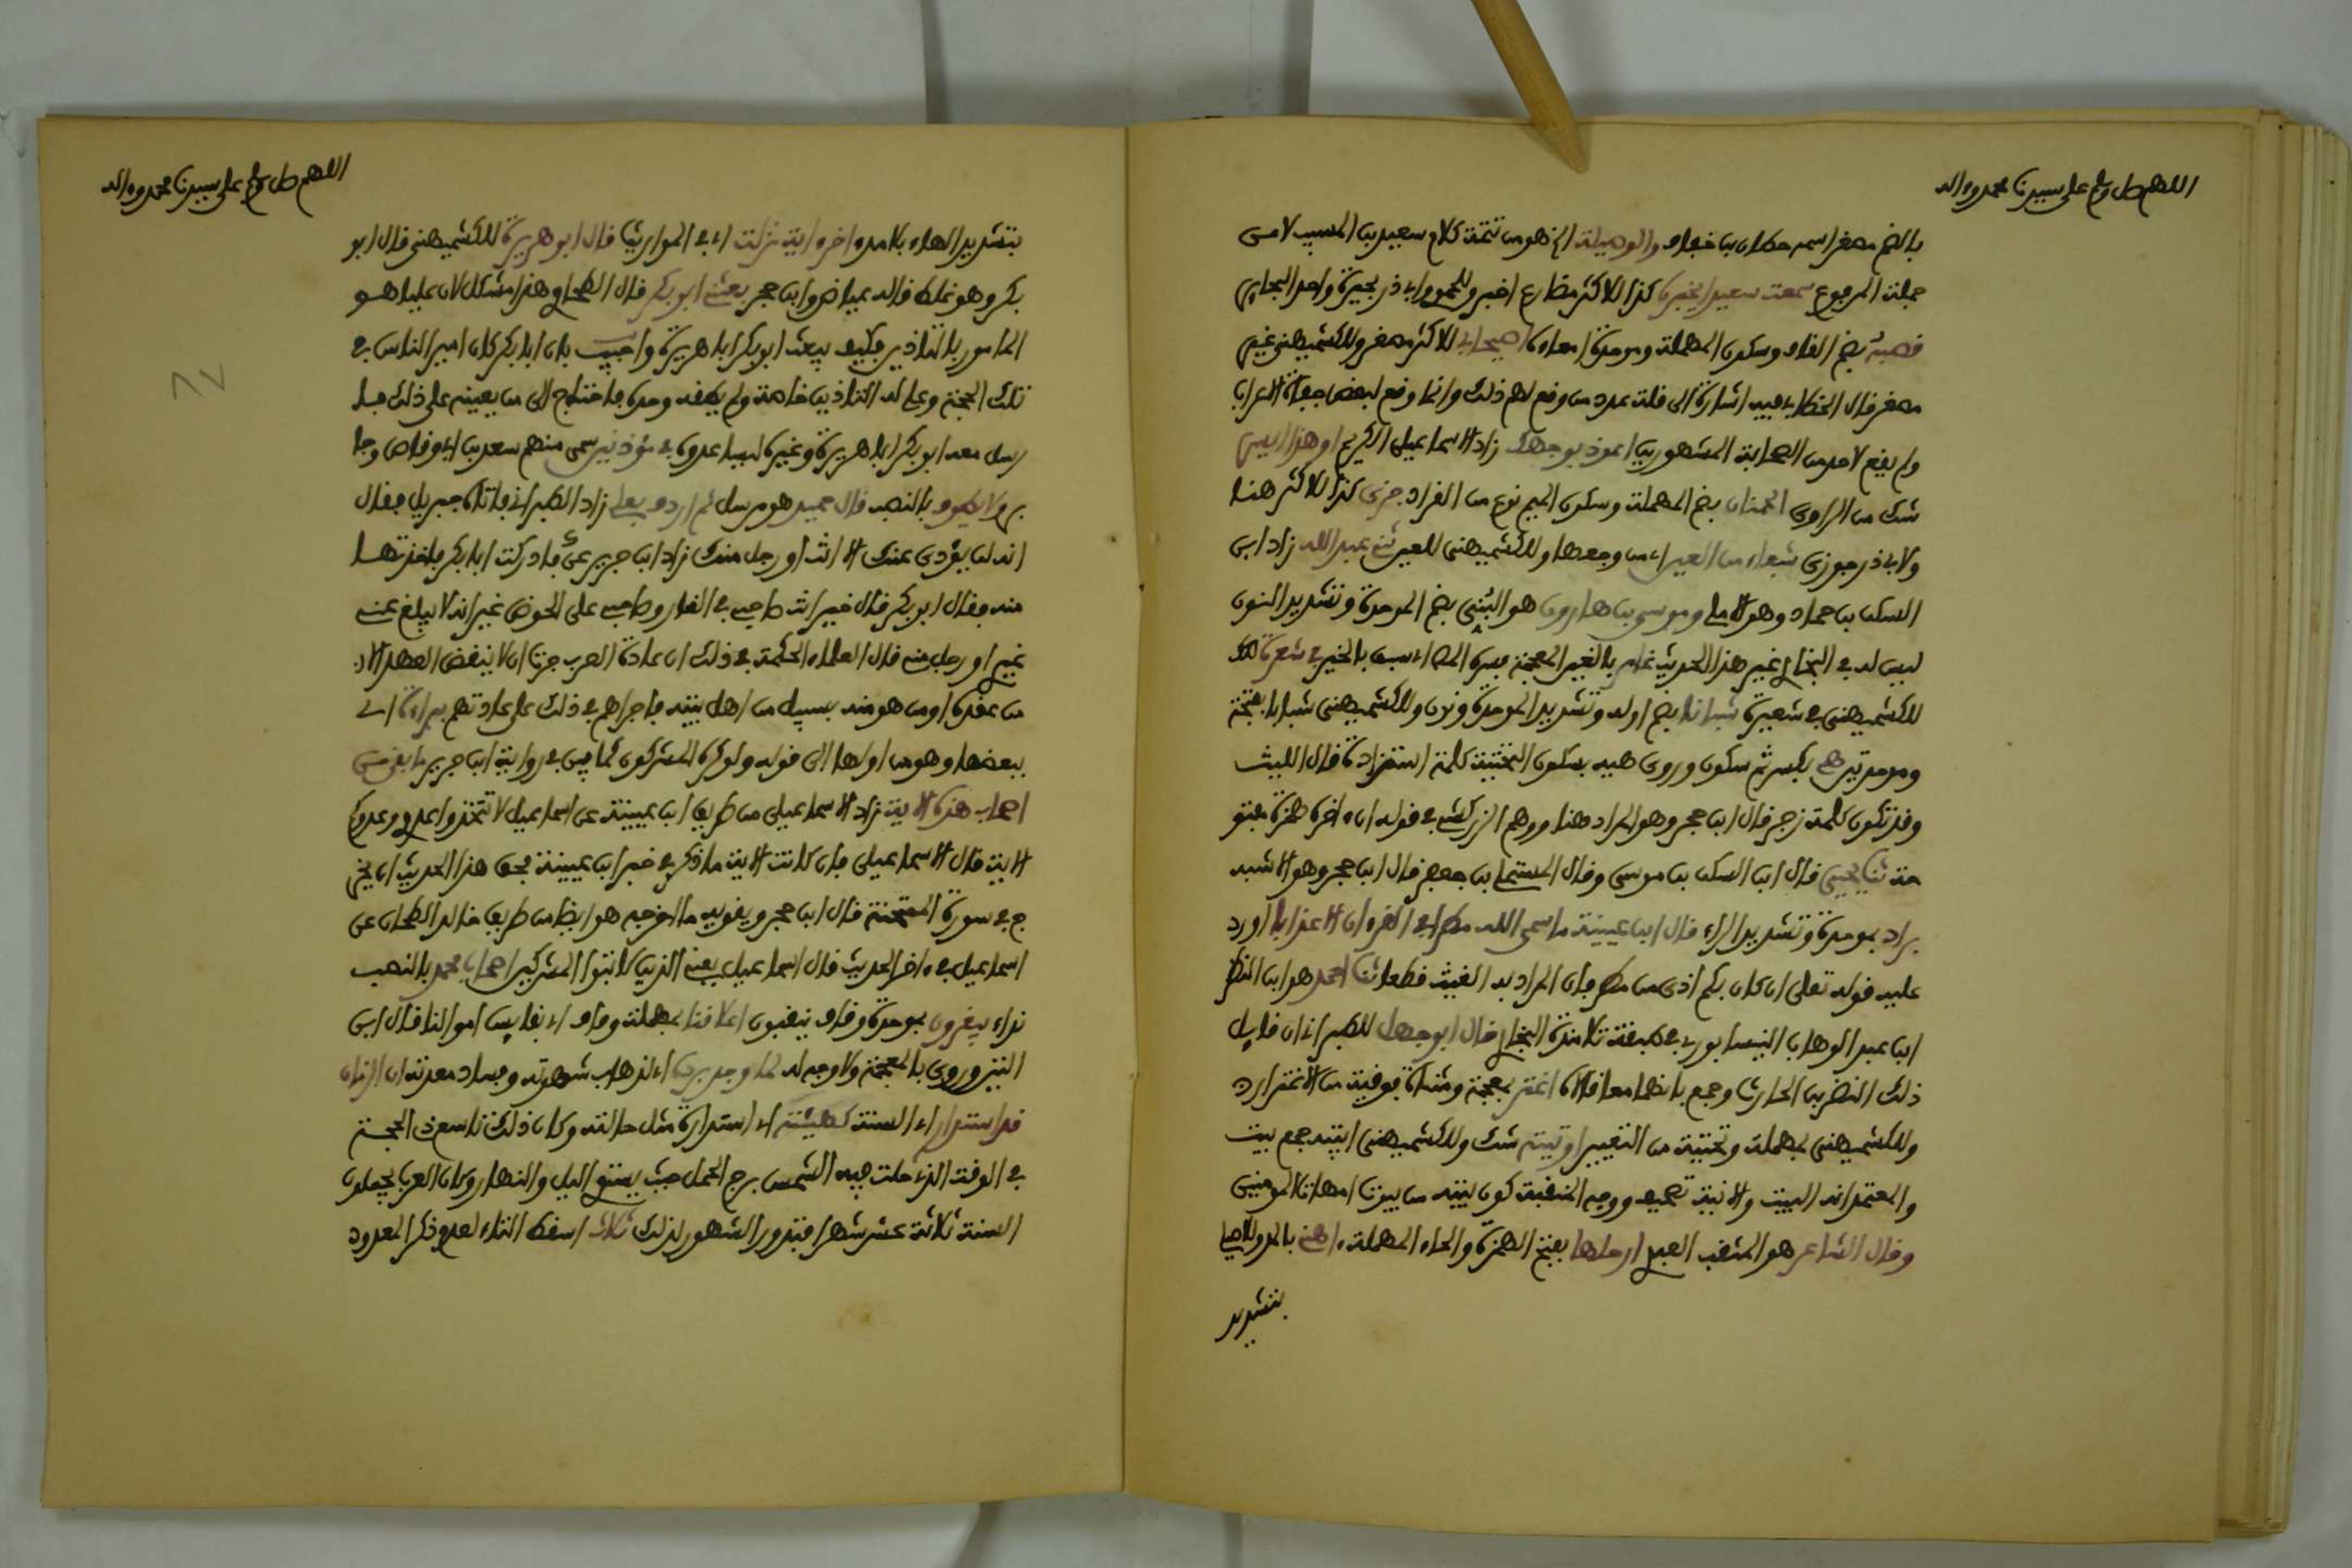 اللهم صل وسلم على سيدنا محمد وءاله
بالضم مصغر اسم مكان بنا خفاف والوصيلة الخ هو من تتمة كلام سعيد بن المسيب لا من
جملة المرفوع سمعت سعيدا يخبره كذا للاكثر مضارع اخبر وللحموي وابي ذر بحيرة واحد البحاير
قصبه بضم القاف وسكون المهملة وموحدة امعاءه اصيحابي للاكثر مصغر وللكشميهني غير
مصغر قال الخطابي فيه اشارة الى قلة عدد من وقع لهم ذلك وانما وقع لبعض جفاة العرب
ولم يقع لاحد من الصحابة المشهورين اعوذ بوجهك زاد الاسماعيلي الكريم او هذا ايسر
شك من الراوي الجمنان بضم المهملة وسكون الميم نوع من القراد جزى كذا للاكثر هنا
ولابي ذر جوزي شفاء من العير اي من وجعها وللكشميهني للعير ثني عبد الله زاد ابن
السكن بن حماد وهو الاملي وموسى بن هارون هو البُنّي بضم الموحدة وتشديد النون
ليس له في البخاري غير هذا الحديث غامر بالغين المعجمة فسره المص اي سبق بالخير في شعرة كذا
للكشميهني في شعيرة شبانا بضم اوله وتشديد الموحدة ونون وللكشميهني شبابا بفتحة
وموحدتين هي بكسر ثم سكون وروي هيه بسكون التحتية كلمة استزادة قال الليث
وقد تكون كلمة زجر قال ابن حجر وهو المراد هنا ووهم الزركشي في قوله ان ءاخره همزة مفتو
حة ثنا يحيى قال ابن السكن بن موسى وقال المستملي بن جعفر قال ابن حجر وهو الاشبه
براد بموحدة وتشديد الراء قال ابن عيينة ما سمى الله مطرا في القرءان الا عذابا اورد
عليه قوله تعلى ان كان بكم اذى من مطر فان المراد به الغيث قطعا ثنا احمد هو ابن النضر
ابن عبد الوهاب النيسابوري في طبقة تلامذة البخاري قال ابو جهل للطبراني ان قايل
ذلك النضر بن الحارث وجمع بانهما معا قالاه اغتر بمعجمة ومثناة فوقية من الاغترار
وللكشميهني بمهملة وتحتية من التعيير او بيته شك وللكشميهني ابيته جمع بيت
والمعتمد انه البيت والانية تصحيف ووجه المنقبة كون بيته من بيوت امهات المومنين
وقال الشاعر هو المثقب العبدي ارحلها بفتح الهمزة والحاء المهملة ءاهة بالمد وللاصيلي
بتشديد
اللهم صل وسلم على سيدنا محمد وءاله
بتشديد الهاء بلا مد ءاخر ءاية نزلت اي في المواريث قال ابو هريرة للكشميهني قال ابو
بكر وهو غلط قاله عياض وابن حجر بعثني ابو بكر قال الطحاوي هذا مشكل لان عليا هو
المامور بالتاذين فكيف يبعث ابو بكر ابا هريرة واجيب بان ابا بكر كان امير الناس في
تلك الحجة وعلي له التاذين خاصة ولم يطقه وحده فاحتاج الى من يعينه على ذلك فا
رسل معه ابو بكر ابا هريرة وغيره ليساعدوه في مؤذنين سمي منهم سعد بن ابي وقاص وجا
بر ولا يطوف بالنصب قال حميد هو مرسل ثم اردف بعلي زاد الطبراني فاتاه جبريل فقال
انه لن يؤدي عنك الا انت او رجل منك زاد ابن جرير عن علي فادركت ابا بكر فاخذتها
منه فقال ابو بكر قال خير انت صاحبي في الغار وصاحبي على الحوض غير انه لا يبلغ عني
غيري او رجل مني قال العلماء الحكمة في ذلك ان عادة العرب جرت ان لا ينقض العهد الا
من عقده او من هو منه بسبيل من اهل بيته فاجراهم في ذلك على عادتهم ببراءة اي
ببعضها وهو من اولها الى قوله ولو كره المشركون كما بين في رواية ابن جرير ما بقي من
اصحاب هذه الاية زاد الاسماعيلي من طريق ابن عيينة عن اسماعيل لا تتخذوا عدوي وعدوكم
الاية قال الاسماعيلي فان كانت الاية ما ذكر في خبر ابن عيينة فحق هذا الحديث ان يخر
ج في سورة الممتحنة قال ابن حجر ويقويه ما اخرجه هو ايضا من طريق خالد الطحان عن
اسماعيل في ءاخر الحديث قال اسماعيل يعني الذين كاتبوا المشركين اصحاب محمد بالنصب
نداء يبقرون بموحدة وقاف ينقبون اعلاقنا بمهملة وقاف اي نفايس اموالنا قال ابن
التين وروي بالمعجمة ولا وجه له لما وجد برده اي لذهاب شهوته وفساد معدته ان الزمان
قد استدار اي السنة كهيئته اي استدارة مثل حالته وكان ذلك تاسع ذي الحجة
في الوقت الذي حلت فيه الشمس برج الحمل حيث يستوي الليل والنهار وكان العرب يجعلون
السنة ثلاثة عشر شهرا فتدور الشهور لذلك ثلاث اسقط التاء لعدم ذكر المعدود